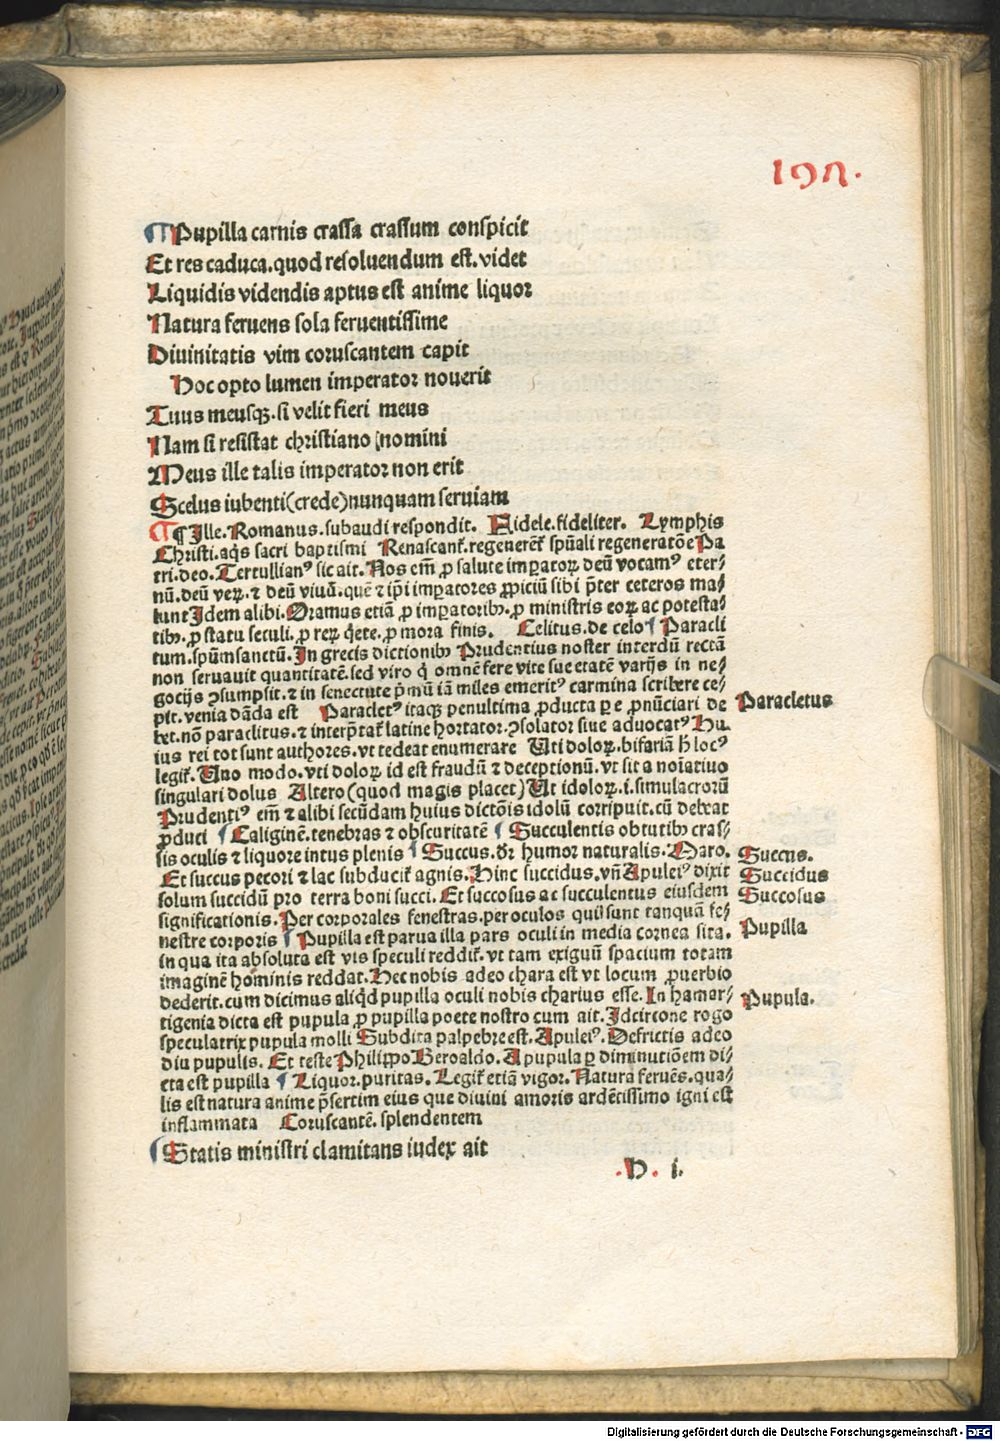 197.
¶ Pupilla carnis crassa crassum conspicit
Et res caduca.quod resoluendum est.videt
Liquidis videndis aptus est anime liquor
Natura feruens sola feruentissime
Diuinitatis vim coruscantem capit
Hoc opto lumen imperator nouerit
Tuus meusqꝫ.si velit fieri meus
Nam si resistat christiano nomini
Meus ille talis imperator non erit
Scelus iubenti(crede)nunquam seruiam
¶ ¶ Ille.Romanus.subaudi respondit. Fidele.fideliter. Lymphis
Christi.aq̄s sacri baptismi Renascant᷑.regenerēt᷑ spūali regeneratōe Pa
tri.deo.Tertullianꝰ sic ait.Nos em̄ ꝓ salute imꝑatoꝝ deū vocamꝰ eter⸗
nū.deū veꝝ.⁊ deū viuū.quē ⁊ ip̄i imꝑatores ꝓpiciū sibi p̄ter ceteros ma⸗
lunt Idem alibi.Oramus etiā ꝓ imꝑatoribꝰ.ꝓ ministris eoꝝ ac potesta⸗
tibꝰ.ꝓ statu seculi.ꝓ reꝝ q̄ete.ꝓ mora finis. Celitus.de celo ¶ Paracli
tum.spūm sanctū.In grecis dictionibꝰ Prudentius noster interdū rectā
non seruauit quantitatē.sed viro q̇ omnē fere vite sue etatē varijs in ne⸗
gocijs ꝯsumpsit.⁊ in senectute p̄mū iā miles emeritꝰ carmina scribere ce⸗
pit.venia dāda est Paracletꝰ itaqꝫ penultima ꝓducta ꝑ e ꝓnūciari de
bet.nō paraclitus.⁊ interp̄tat᷑ latine hortator.ꝯsolator siue aduocatꝰ Hu⸗
ius rei tot sunt authores.vt tedeat enumerare Uti doloꝝ.bifariā h̄ locꝰ
legit᷑.Uno modo.vti doloꝝ id est fraudū ⁊ deceptionū.vt sit a noīatiuo
singulari dolus Altero(quod magis placet)Ut idoloꝝ.i.simulacrorū
Prudentiꝰ em̄ ⁊ alibi secūdam huius dictōis idolū corripuit.cū debeat
ꝓduci ¶ Caliginē.tenebras ⁊ obscuritatē ¶ Succulentis obtutibꝰ cras⸗
sis oculis ⁊ liquore intus plenis ¶ Succus.dr̄ humor naturalis.Maro.
Et succus pecori ⁊ lac subducit᷑ agnis.Hinc succidus.vn̄ Apuleiꝰ dixit
solum succidū pro terra boni succi.Et succosus ac succulentus eiusdem
significationis.Per corporales fenestras.per oculos qui sunt tanquā fe⸗
nestre corporis ¶ Pupilla est parua illa pars oculi in media cornea sita.
in qua ita absoluta est vis speculi reddit᷑.vt tam exiguū spacium totam
imaginē hominis reddat.Hec nobis adeo chara est vt locum ꝓuerbio
dederit.cum dicimus aliq̇d pupilla oculi nobis charius esse.In hamar⸗
tigenia dicta est pupula ꝓ pupilla poete nostro cum ait.Idcircone rogo
speculatrix pupula molli Subdita palpebre est.Apuleiꝰ.Defrictis adeo
diu pupulis. Et teste Philippo Beroaldo.A pupula ꝑ diminutiōem di⸗
cta est pupilla ¶ Liquor.puritas.Legit᷑ etiā vigor.Natura feruēs.qua⸗
lis est natura anime p̄sertim eius que diuini amoris ardētissimo igni est
inflammata Coruscantē.splendentem
¶ Statis ministri clamitans iudex ait
.H. i.
Paracletus
Succus.
Succidus
Succosus
Pupilla
Pupula.
Digitalisierung gefördert durch die Deutsche Forschungsgemeinschaft - DFG